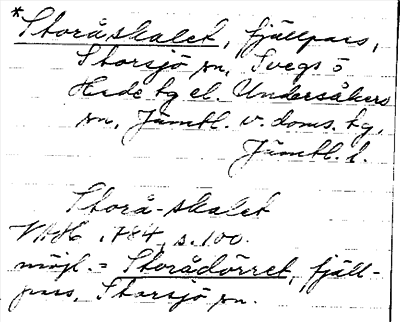 *Storåskalet, fjällpass,
Storsjö sn, Svegs o
Hede tg el. Undersåkers
sn, Jämtl. v. doms. tg,
Jämtl. l.
Storå-skalet
1784, s. 100.
möjl. = Storådörret, fjäll-
pass, Storsjö sn.